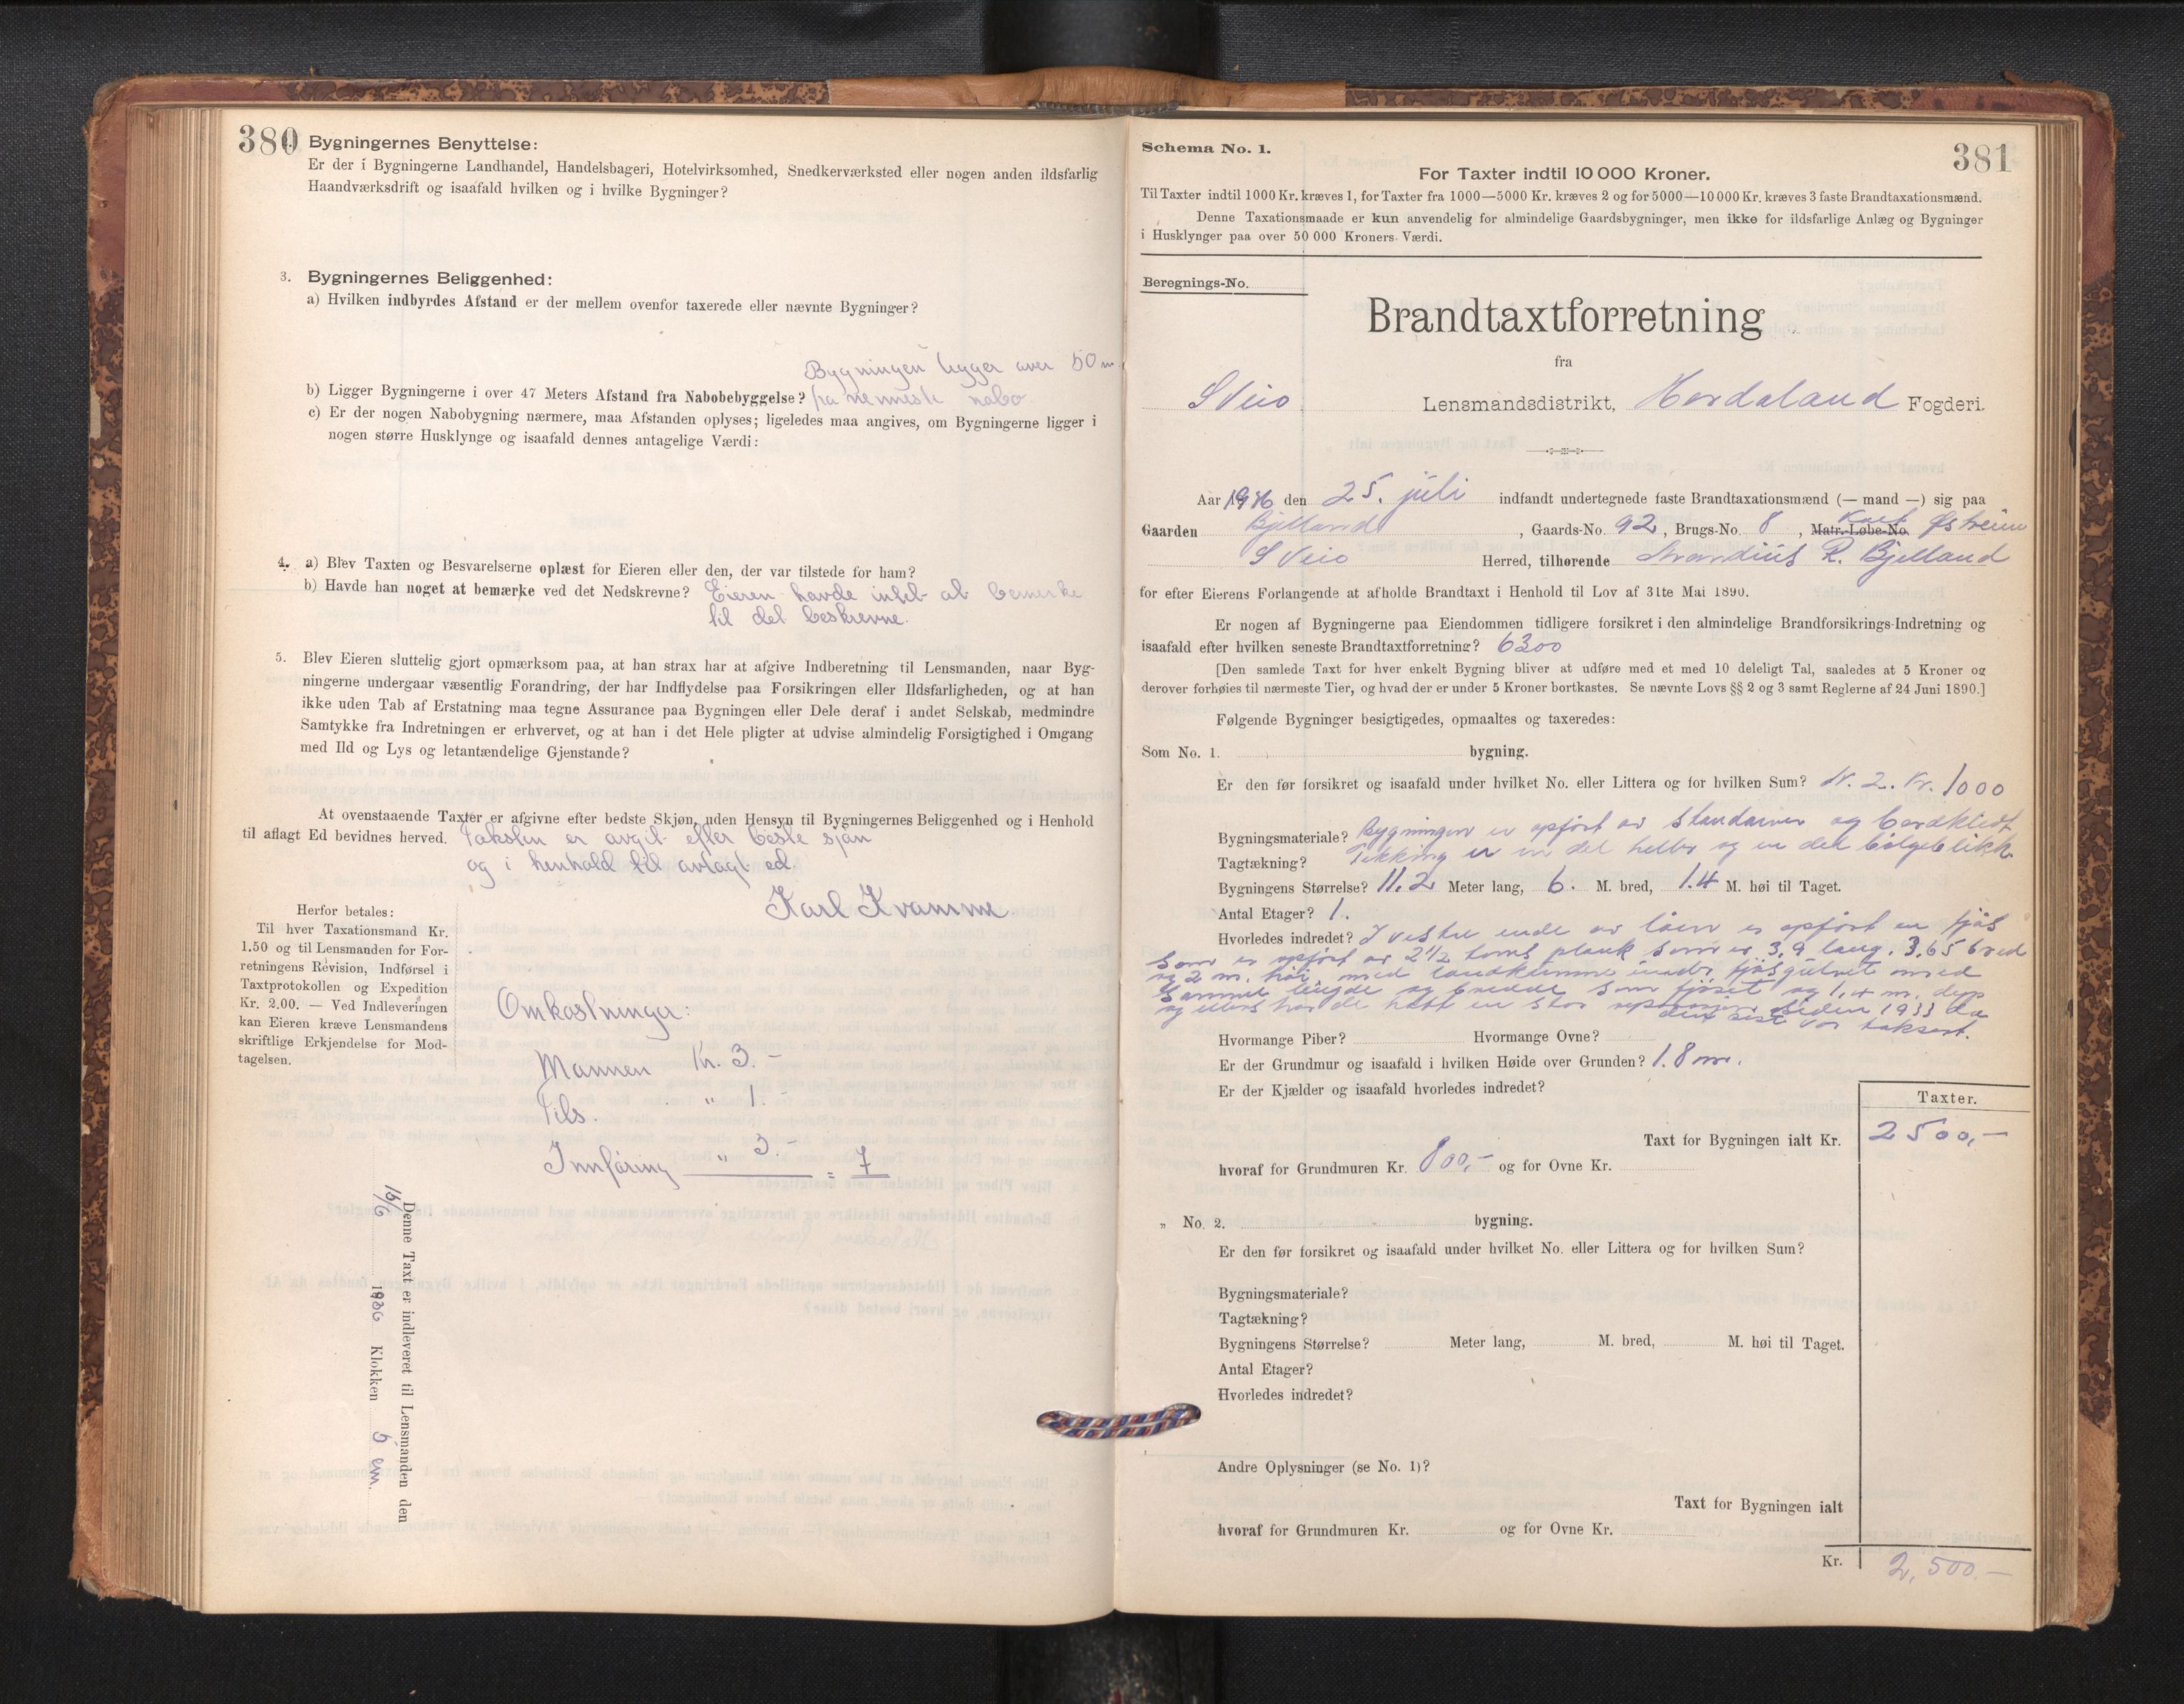 380
Bygningernes Benyttelse:
Er der i Bygningerne Landhandel, Handelsbageri, Hotelvirksomhed, Snedkerværksted eller nogen anden ildsfarlig
Haandværksdrift og isaafald hvilken og i hvilke Bygninger?
3. Bygningernes Beliggenhed:
a) Hvilken indbyrdes Afstand er der mellem ovenfor taxerede eller nævnte Bygninger?
Bygningen ligger over 50 m.
b) Ligger Bygningerne i over 47 Meters Afstand fra Nabobebyggelse? fra nermeste nabo
c) Er der nogen Nabobygning nærmere, maa Afstanden oplyses; ligeledes maa angives, om Bygningerne ligger i
nogen større Husklynge og isaafald dennes antagelige Værdi:
4. a) Blev Taxten og Besvarelserne oplæst for Eieren eller den, der var tilstede for ham?
b) Havde han noget at bemærke ved det Nedskrevne? Eieren havde intet at bemerke
til det beskrevne.
5. Blev Eieren sluttelig gjort opmærksom paa, at han strax har at afgive Indberetning til Lensmanden, naar Byg-
ningerne undergaar væsentlig Forandring, der har Indflydelse paa Forsikringen eller Ildsfarligheden, og at han
ikke uden Tab af Erstatning maa tegne Assurance paa Bygningen eller Dele deraf i andet Selskab, medmindre
Samtykke fra Indretningen er erhvervet, og at han i det Hele pligter at udvise almindelig Forsigtighed i Omgang
med Ild og Lys og letantændelige Gjenstande?
At ovenstaaende Taxter er afgivne efter bedste Skjøn, uden Hensyn til Bygningernes Beliggenhed og i Henhold
til aflagt Ed bevidnes herved. Taksten er avgit efter beste sjøn
og i henhold til avlagt ed.
Karl Kvamme
Herfor betales:
Til hver Taxationsmand Kr.
1.50 og til Lensmanden for For-
retningens Revision, Indførsel i
Taxtprotokollen og Expedition
Kr. 2.00. — Ved Indleveringen
kan Eieren kræve Lensmandens
skriftlige Erkjendelse for Mod-
tagelsen.
Omkostninger:
Mannen Kr. 3.-
" 1.-
Innføring " 3.- = 7
Denne Taxt er indleveret til Lensmanden den
1936 Klokken 6 em.
381
Schema No. 1.
For Taxter indtil 10 000 Kroner.
Til Taxter indtil 1000 Kr. kræves 1, for Taxter fra 1000—5000 Kr. kræves 2 og for 5000—10 000 Kr. kræves 3 faste Brandtaxationsmænd.
Denne Taxationsmaade er kun anvendelig for almindelige Gaardsbygninger, men ikke for ildsfarlige Anlæg og Bygninger
i Husklynger paa over 50 000 Kroners Værdi.
Beregnings-No.
Brandtaxtforretning
fra
Sveio Lensmandsdistrikt, Hordaland Fogderi.
Aar 1936 den 25. juli indfandt undertegnede faste Brandtaxationsmænd (— mand —) sig paa
Gaarden Bjelland, Gaards-No. 92, Brugs-No. 8, Matr.-Løbe-No. Østreim
Sveio Herred, tilhørende R. Bjelland
for efter Eierens Forlangende at afholde Brandtaxt i Henhold til Lov af 31te Mai 1890.
Er nogen af Bygningerne paa Eiendommen tidligere forsikret i den almindelige Brandforsikrings-Indretning og
isaafald efter hvilken seneste Brandtaxtforretning? 6300
[Den samlede Taxt for hver enkelt Bygning bliver at udføre med et med 10 deleligt Tal, saaledes at 5 Kroner og
derover forhøies til nærmeste Tier, og hvad der er under 5 Kroner bortkastes. Se nævnte Lovs §§ 2 og 3 samt Reglerne af 24 Juni 1890.]
Følgende Bygninger besigtigedes, opmaaltes og taxeredes:
Som No. 1. bygning.
Er den før forsikret og isaafald under hvilket No. eller Littera og for hvilken Sum? N. 2. Kr. 1000
Bygningsmateriale? Bygningen er opført av standarver og bordkledt
Tagtækning? Tekking er en del heller og en del bølgeblikk.
Bygningens Størrelse? 11.2 Meter lang, 6. M. bred, 1.4 M. høi til Taget.
Antal Etager? 1.
Hvorledes indredet? I vestre ende av løen er opført en fjøs
som er opført av 2 1/2 toms plank som er 3,9 lang. 3.65 bred
og 2 m. høi, med landkumme under fjøsgulvet med
samme lengde og bredde som fjøset og 1,4 m. dyp
og ellers har de hatt en stor reparasjon siden 1933 da
den sist var taksert.
Hvormange Piber? Hvormange Ovne?
Er der Grundmur og isaafald i hvilken Høide over Grunden? 1.8 m.
Er der Kjælder og isaafald hvorledes indredet?
Taxter.
Taxt for Bygningen ialt Kr. 2500,-
hvoraf for Grundmuren Kr. 800,- og for Ovne Kr.
„ No. 2. bygning.
Er den før forsikret og isaafald under hvilket No. eller Littera og for hvilken Sum?
Bygningsmateriale?
Tagtækning?
Bygningens Størrelse? Meter lang, M. bred, M. høi til Taget.
Antal Etager?
Hvorledes indredet?
Andre Oplysninger (se No. 1)?
Taxt for Bygningen ialt
hvoraf for Grundmuren Kr. og for Ovne Kr.
Kr. 2,500.-